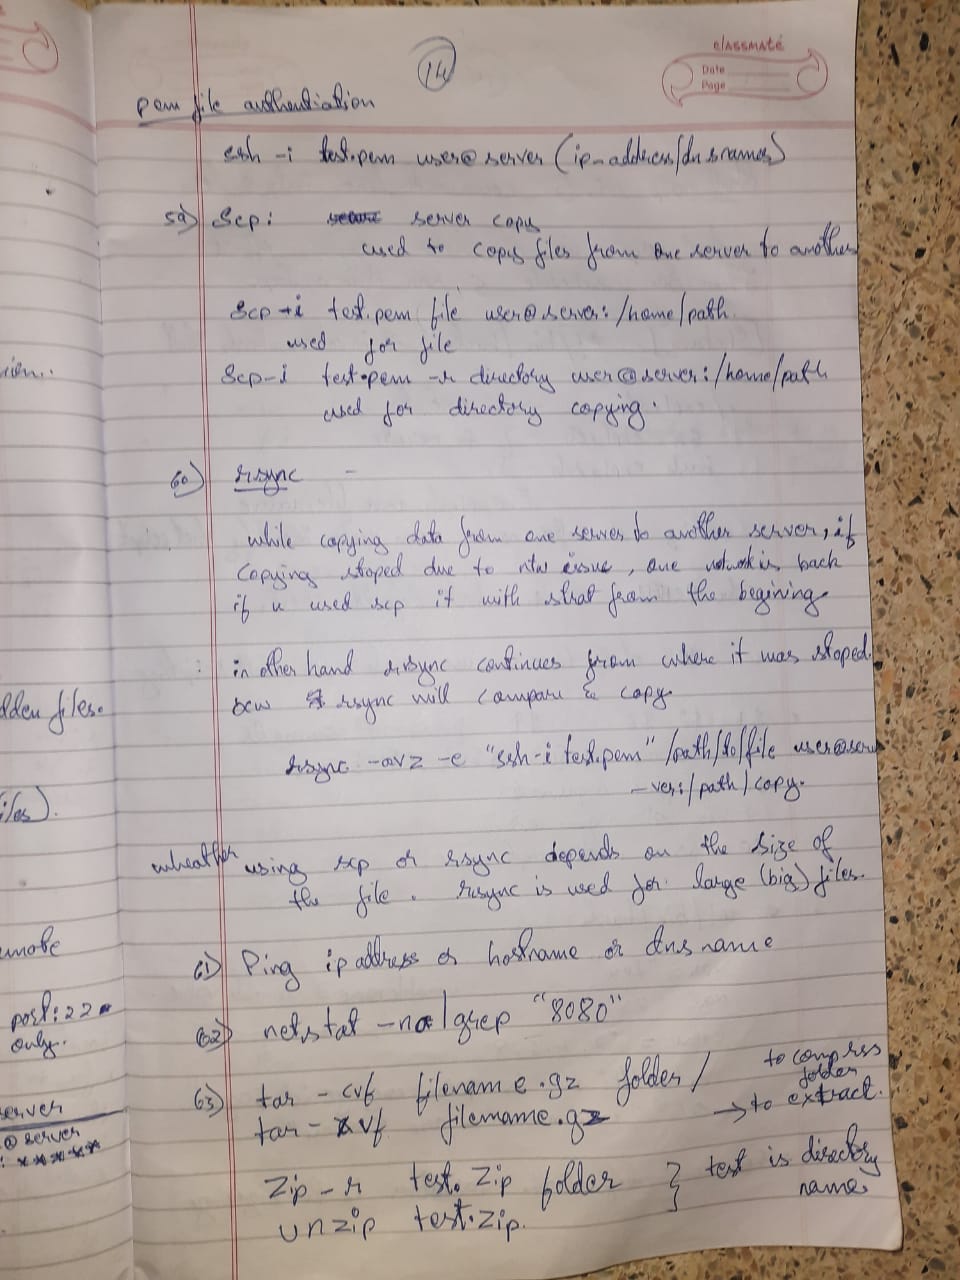 classmate
Date
Page
14
pem file authentiation
ssh -i test.pem user@server (ip-address/dnsnames)
59) Scp: server copy
used to copy files from one server to another
Scp -i test.pem file user@server:/home/path
used for file
Scp-i test.pem -r directory user@server:/home/path
used for directory copying.
60) rsync -
while copying data from one server to another server, if
copying stoped due to ntw issue, one network is back
if u used scp it with strat from the begining
in other hand rsync continues from where it was stoped.
bcw rsync will compare & copy
rsync -avz -e "ssh-i test.pem" /path/to/file user@ser
-ver:/path/copy.
wheather using scp or rsync depends on the size of
the file. rsync is used for large (big) files.
61) Ping ip address or hostname or dns name
62) netstat -na|grep "8080"
63) tar - cvf filename.gz folder/ to compress
folder
tar - xvf filename.gz → to extract.
Zip - r test.Zip folder } test is directory
name
unzip test.zip.
dden files.
port:22
only.
server
@ server
: *****